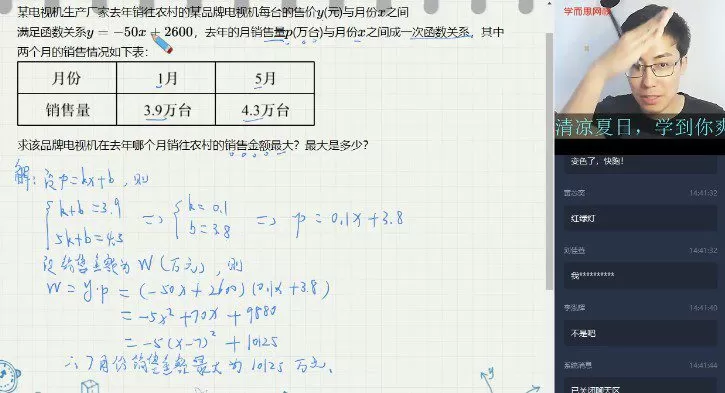 某电视机生产厂家去年销往农村的某品牌电视机每台的售价y(元)与月份x之间
满足函数关系y = −50x + 2600，去年的月销售量p(万台)与月份x之间成一次函数关系，其中
两个月的销售情况如下表：
月份 1月 5月
销售量 3.9万台 4.3万台
求该品牌电视机在去年哪个月销往农村的销售金额最大？最大是多少？
解：设p=kx+b，则
k+b=3.9
5k+b=4.3
=> k=0.1
b=3.8
=> p=0.1x+3.8
设销售金额为W（万元），则
W=y·p=(-50x+2600)(0.1x+3.8)
=-5x²+70x+9880
=-5(x-7)²+10125
∴7月份销售金额最大为10125万元.
y
x
学而思网校
清凉夏日，学到你爽
变色了，快跑！
14:41:32
红绿灯
14:41:32
我**********
14:41:40
不是吧
系统消息
14:41:44
已关闭聊天区